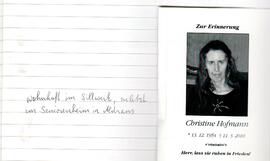 wohnhaft im Sillwerk, zuletzt
im Seniorenheim in Matrans
Zur Erinnerung
Christine Hofmann
* 13. 12. 1951 † 11. 5. 2010
Herr, lass sie ruhen in Frieden!